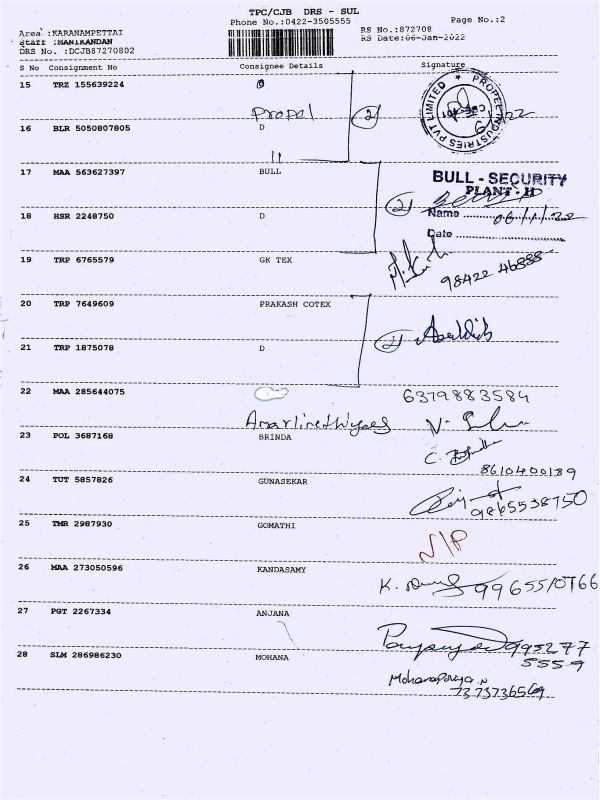 TPC/CJB DRS - SUL
Phone No.:0422-3505555
Page No.:2
Area :KARANAMPETTAI
RS No.:872708
Staff :MANIKANDAN
RS Date:06-Jan-2022
DRS No. :DCJB87270802
S No Consignment No Consignee Details Signature
15 TRZ 155639224
Propel
PROPEL INDUSTRIES PVT LIMITED
16 BLR 5050807805 D
17 MAA 563627397 BULL
BULL - SECURITY
PLANT - II
18 HSR 2248750 D
Name 06/1/22
Date
19 TRP 6765579 GK TEX
98422 46888
20 TRP 7649609 PRAKASH COTEX
21 TRP 1875078 D
22 MAA 285644075
6379883584
23 POL 3687168 BRINDA
8610400189
24 TUT 5857826 GUNASEKAR
9865538750
25 TMR 2987930 GOMATHI
N/P
26 MAA 273050596 KANDASAMY
27 PGT 2267334 ANJANA
995277
5559
28 SLM 286986230 MOHANA
Mohanapriya
7373736569